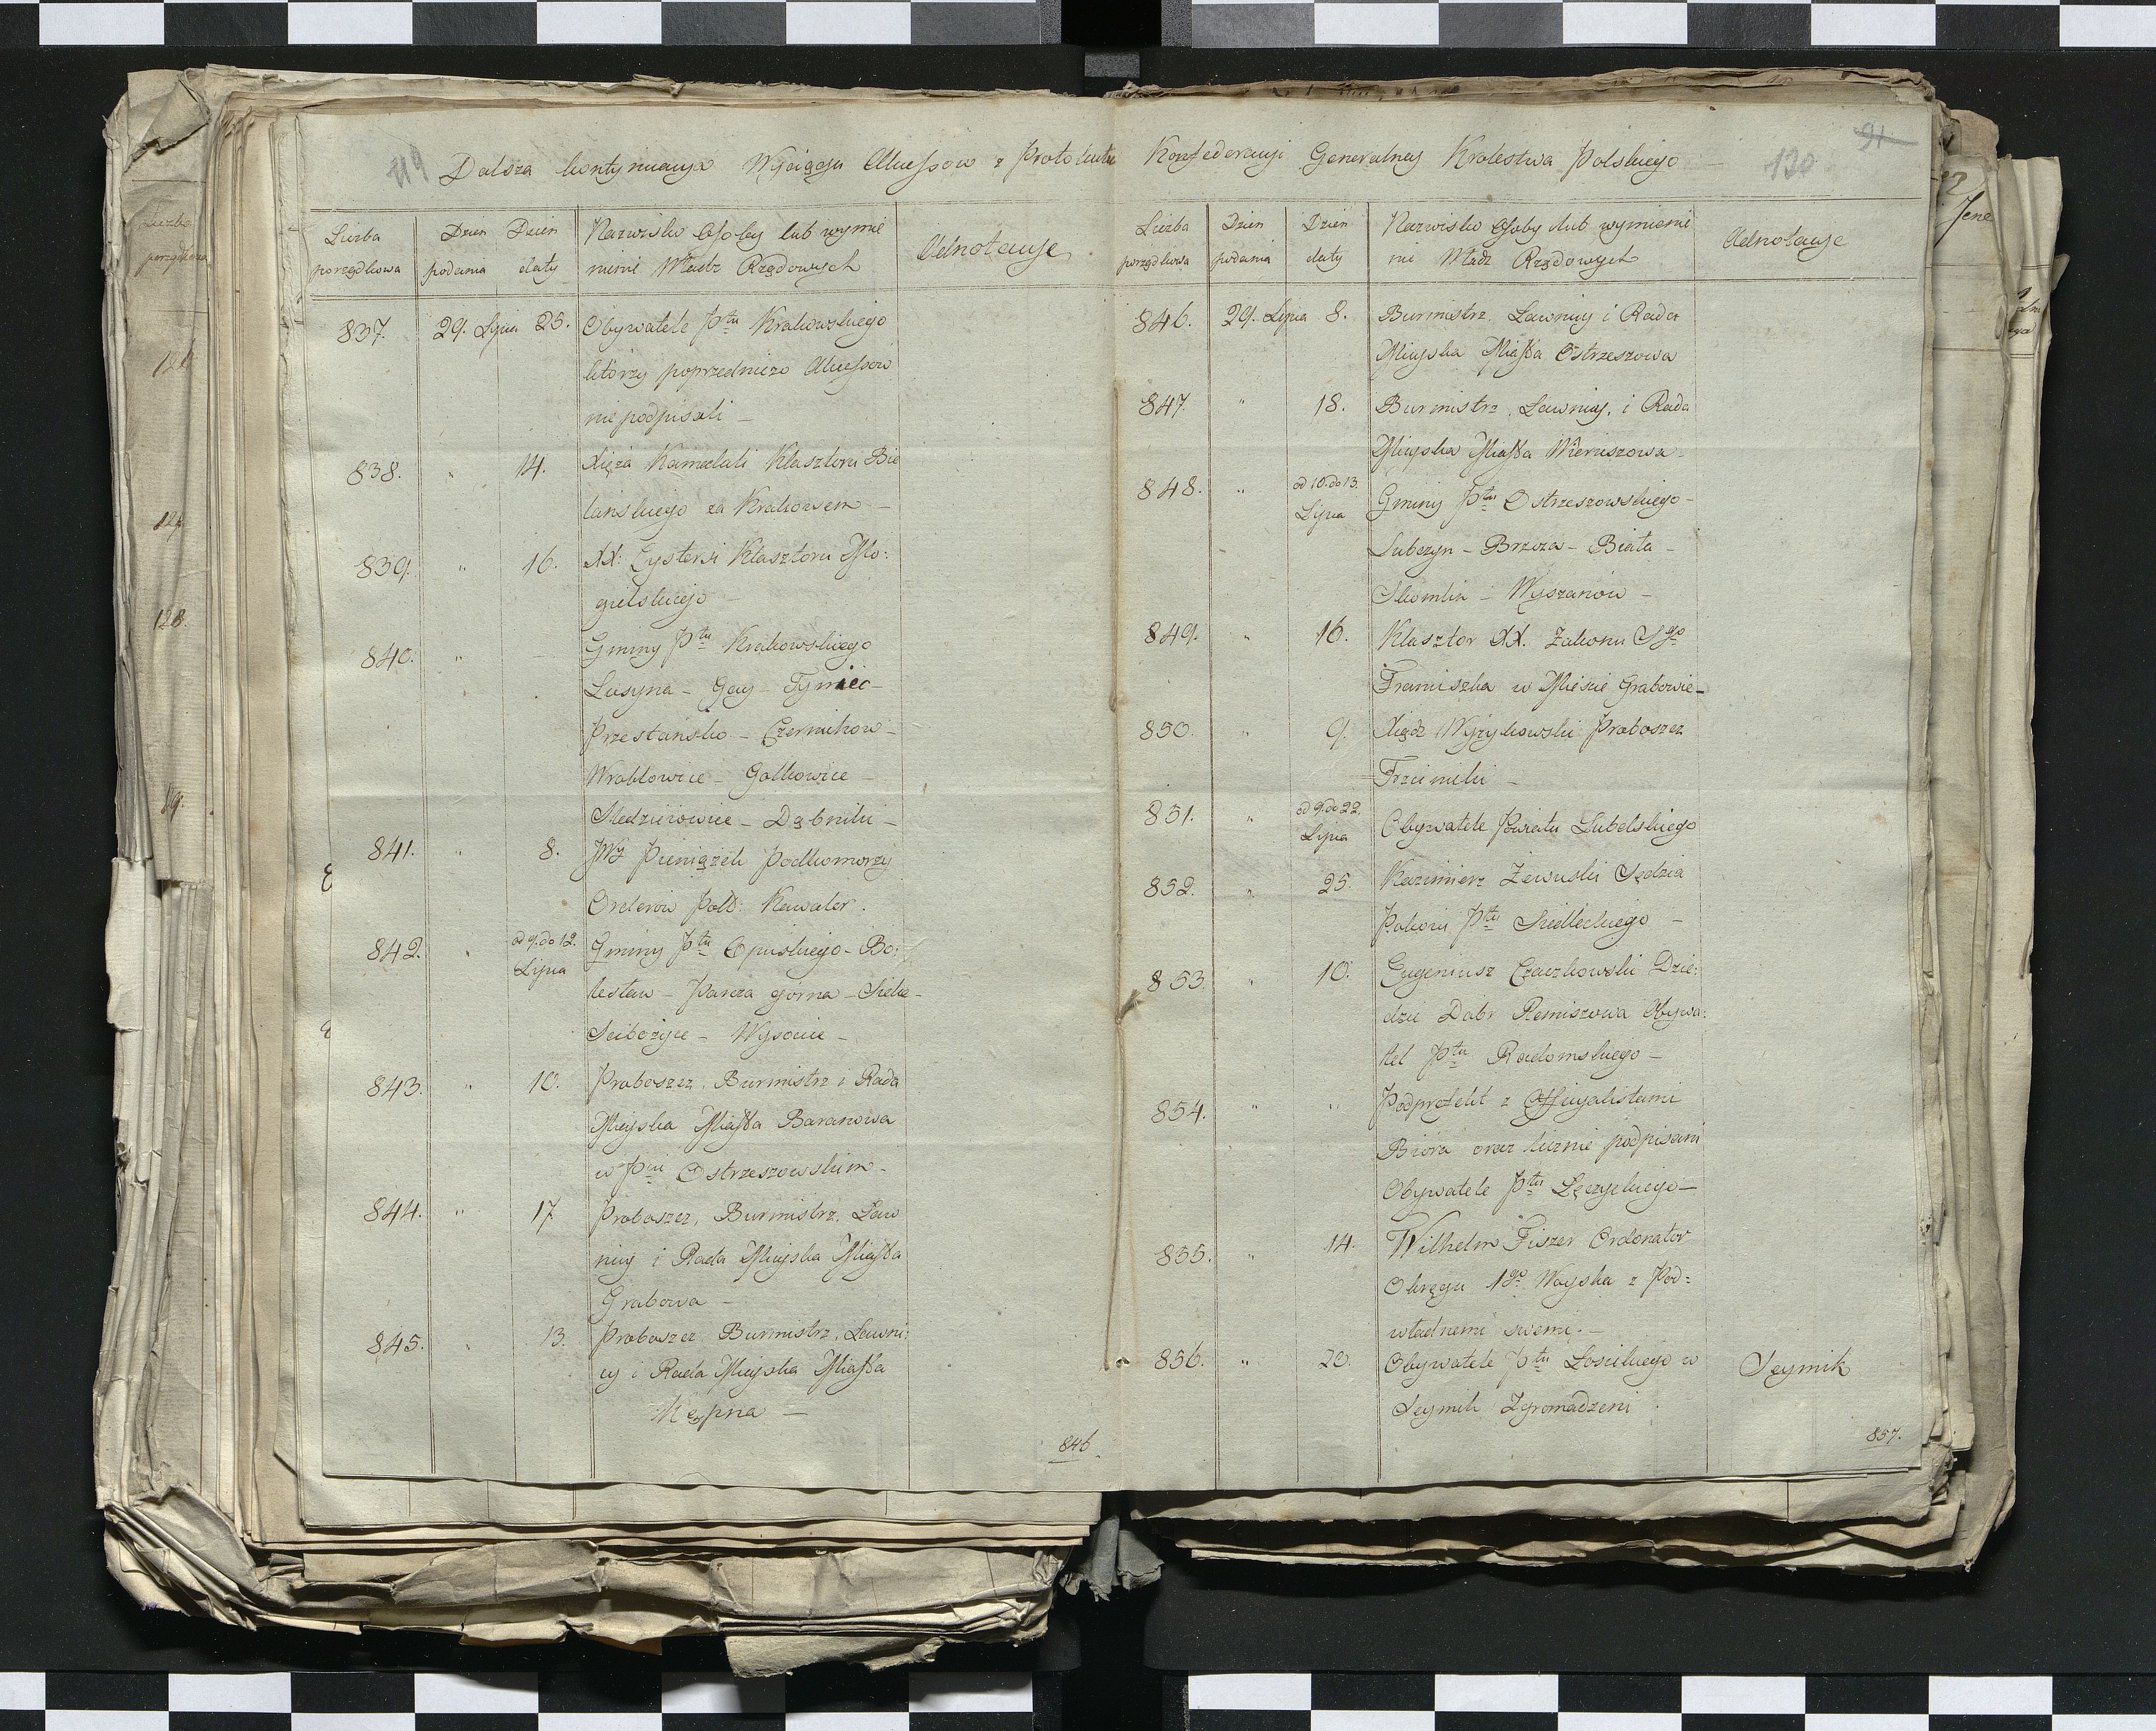 119
Dalsza kontynuacya Wyciągu Akcessow z Protokułu Konfederacyi Generalney Krolestwa Polskiego
91
120
Liczba porządkowa
Dzień podania
Dzień daty
Nazwisko Osoby lub wymie
nienie Władz Rządowych
Adnotacye
837. 29. Lipca 25. Obywatele Ptu Krakowskiego
którzy poprzedniczo Akcessow
nie podpisali –
838. " 14. Xięża Kameduli Klasztoru Bie
lańskiego za Krakowem –
839. " 16. XX: Cystersi Klasztoru Mo:
gielskiego –
840. " – Gminy Ptu Krakowskiego
Lusyna – Gay – Tyniec –
Przestańsko – Czernichow –
Wrobłowice – Golkowice –
Sledziejowice – Dębniki –
841. " 8. JWJ Pieniążek Podkomorzy
Orderow Polb: Kawaler.
842. " od 9. do 12. Lipca Gminy Ptu Opuskiego – Bo:
lesław – Parcza górna – Sieke –
Sciborzyce – Wysocice –
843. " 10. Proboszcz, Burmistrz i Rada
Mieyska Miasta Baranowa
w Pcie Ostrzeszowskim –
844. " 17. Proboszcz, Burmistrz, Ław
nicy i Rada Mieyska Miasta
Grabowa –
845. " 13. Proboszcz, Burmistrz, Ławni:
cy i Rada Mieyska Miasta
Kępna –
846
Liczba porządkowa
Dzień podania
Dzień daty
Nazwisko Osoby lub wymienie
nie Władz Rządowych
Adnotacye
846. 29. Lipca 8. Burmistrz, Ławnicy i Rada
Mieyska Miasta Ostrzeszowa
847. " 18. Burmistrz, Ławnicy, i Rada
Mieyska Miasta Wieruszowa –
848. " od 10. do 13. Lipca Gminy Ptu Ostrzeszowskiego –
Lubczyn – Brzoza – Biała –
Skomlin – Wyszanow –
849. " 16. Klasztor XX. Zakonu Sgo
Franciszka w Mieście Grabowie –
850. " 9. Xiądz Wyżykowski Proboszcz
Trzcinicki –
851. " od 9. do 22. Lipca Obywatele Powiatu Lubelskiego
852. " 25. Kazimierz Zewuski Sędzia
Pokoiu Ptu Siedleckiego –
853. " 10. Eugeniusz Czaczkowski Dzie:
dzic Dobr Remiszowa Obywa:
tel Ptu Radomskiego –
854. " " Podprefekt z Officyalistami
Biora oraz licznie podpisani
Obywatele Ptu Łęczyckiego –
855. " 14. Wilhelm Fiszer Ordonator
Okręgu 1go Woyska z Pod:
władnemi swemi. –
856. " 20. Obywatele Ptu Łosickiego w
Seymik Zgromadzeni. Seymik
857.